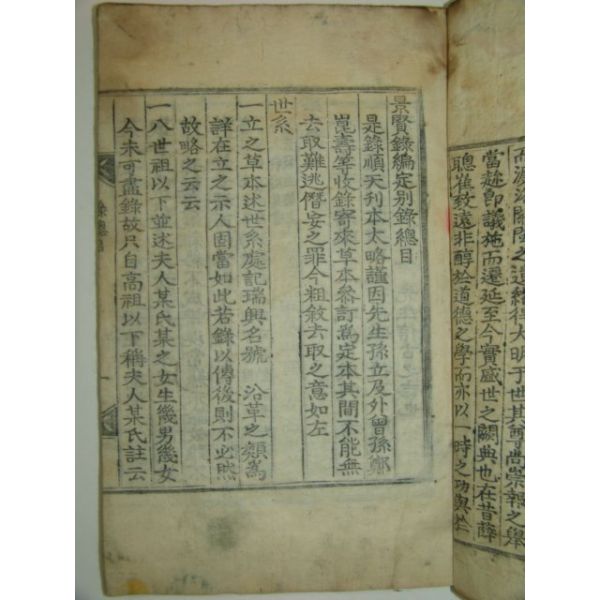 而源洛關閩之遺緒得大明于世其尊尚崇報之舉
當趂卽議施而遷延至今實盛世之闕典也在昔薛
聰崔致遠非醇於道德之學而亦以一時之功與
景賢錄編定别錄總目
是錄順天刋本太略謹因先生孫立及外曾孫鄭
崑壽等收錄寄來草本參訂爲定本其間不能無
去取難逃僭妄之罪今粗敘去取之意如左
世系
一立之草本述世系處記瑞興名號 沿革之類爲
詳在立之示人固當如此若錄以傳後則不必然
故略之云云
一八世祖以下並述夫人某氏某之女生幾男幾女
今未可盡錄故只自高祖以下稱夫人某氏註云